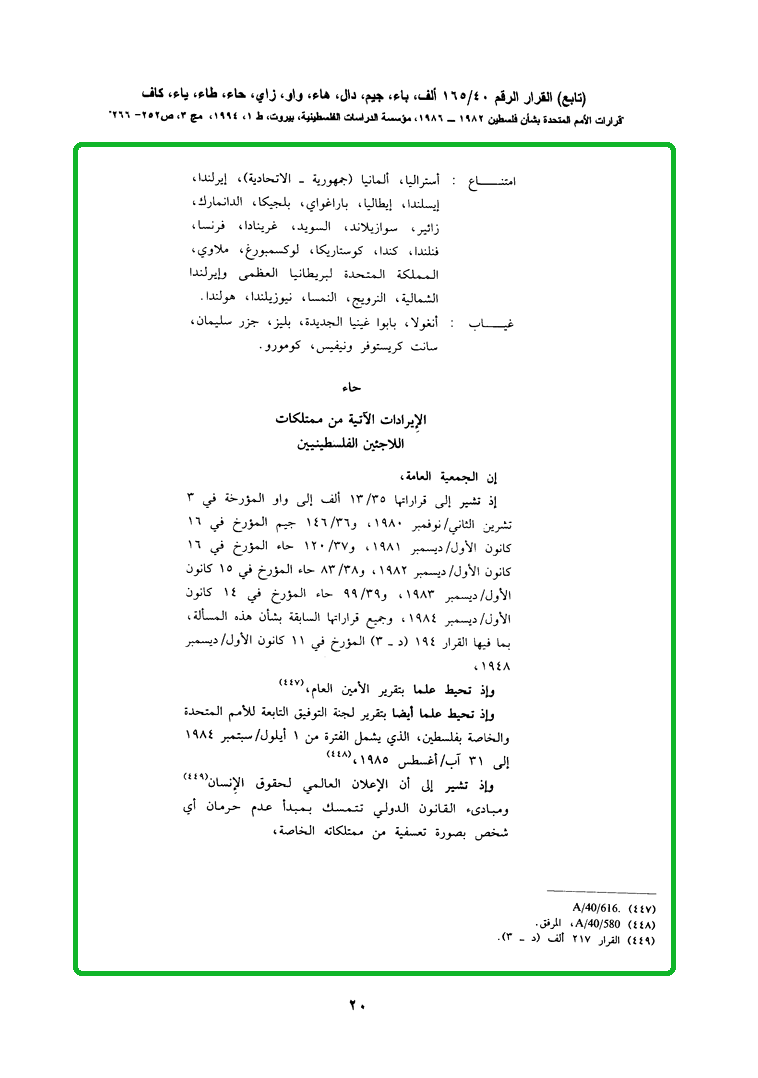 (تابع) القرار الرقم ١٦٥/٤٠ ألف، باء، جيم، دال، هاء، واو، زاي، حاء، طاء، ياء، كاف
"قرارات الأمم المتحدة بشأن فلسطين ١٩٨٢ ــ ١٩٨٦، مؤسسة الدراسات الفلسطينية، بيروت، ط ١، ١٩٩٤، مج ٣، ص٢٥٢- ٢٦٦"
امتنـــاع : أستراليا، ألمانيا (جمهورية ـ الاتحادية)، إيرلندا،
إيسلندا، إيطاليا، باراغواي، بلجيكا، الدانمارك،
زائير، سوازيلاند، السويد، غرينادا، فرنسا،
فنلندا، كندا، كوستاريكا، لوكسمبورغ، ملاوي،
المملكة المتحدة لبريطانيا العظمى وإيرلندا
الشمالية، النرويج، النمسا، نيوزيلندا، هولندا.
غيـــاب : أنغولا، بابوا غينيا الجديدة، بليز، جزر سليمان،
سانت كريستوفر ونيفيس، كومورو.
حاء
الإيرادات الآتية من ممتلكات
اللاجئين الفلسطينيين
إن الجمعية العامة،
إذ تشير إلى قراراتها ١٣/٣٥ ألف إلى واو المؤرخة في ٣
تشرين الثاني/نوفمبر ١٩٨٠، و١٤٦/٣٦ جيم المؤرخ في ١٦
كانون الأول/ديسمبر ١٩٨١، و١٢٠/٣٧ حاء المؤرخ في ١٦
كانون الأول/ديسمبر ١٩٨٢، و٨٣/٣٨ حاء المؤرخ في ١٥ كانون
الأول/ديسمبر ١٩٨٣، و٩٩/٣٩ حاء المؤرخ في ١٤ كانون
الأول/ديسمبر ١٩٨٤، وجميع قراراتها السابقة بشأن هذه المسألة،
بما فيها القرار ١٩٤ (د ـ ٣) المؤرخ في ١١ كانون الأول/ديسمبر
١٩٤٨،
وإذ تحيط علما بتقرير الأمين العام،(٤٤٧)
وإذ تحيط علما أيضا بتقرير لجنة التوفيق التابعة للأمم المتحدة
والخاصة بفلسطين، الذي يشمل الفترة من ١ أيلول/سبتمبر ١٩٨٤
إلى ٣١ آب/أغسطس ١٩٨٥،(٤٤٨)
وإذ تشير إلى أن الإعلان العالمي لحقوق الإنسان(٤٤٩)
ومبادىء القانون الدولي تتمسك بمبدأ عدم حرمان أي
شخص بصورة تعسفية من ممتلكاته الخاصة،
(٤٤٧) A/40/616.
(٤٤٨) A/40/580، المرفق.
(٤٤٩) القرار ٢١٧ ألف (د ـ ٣).
٢٠